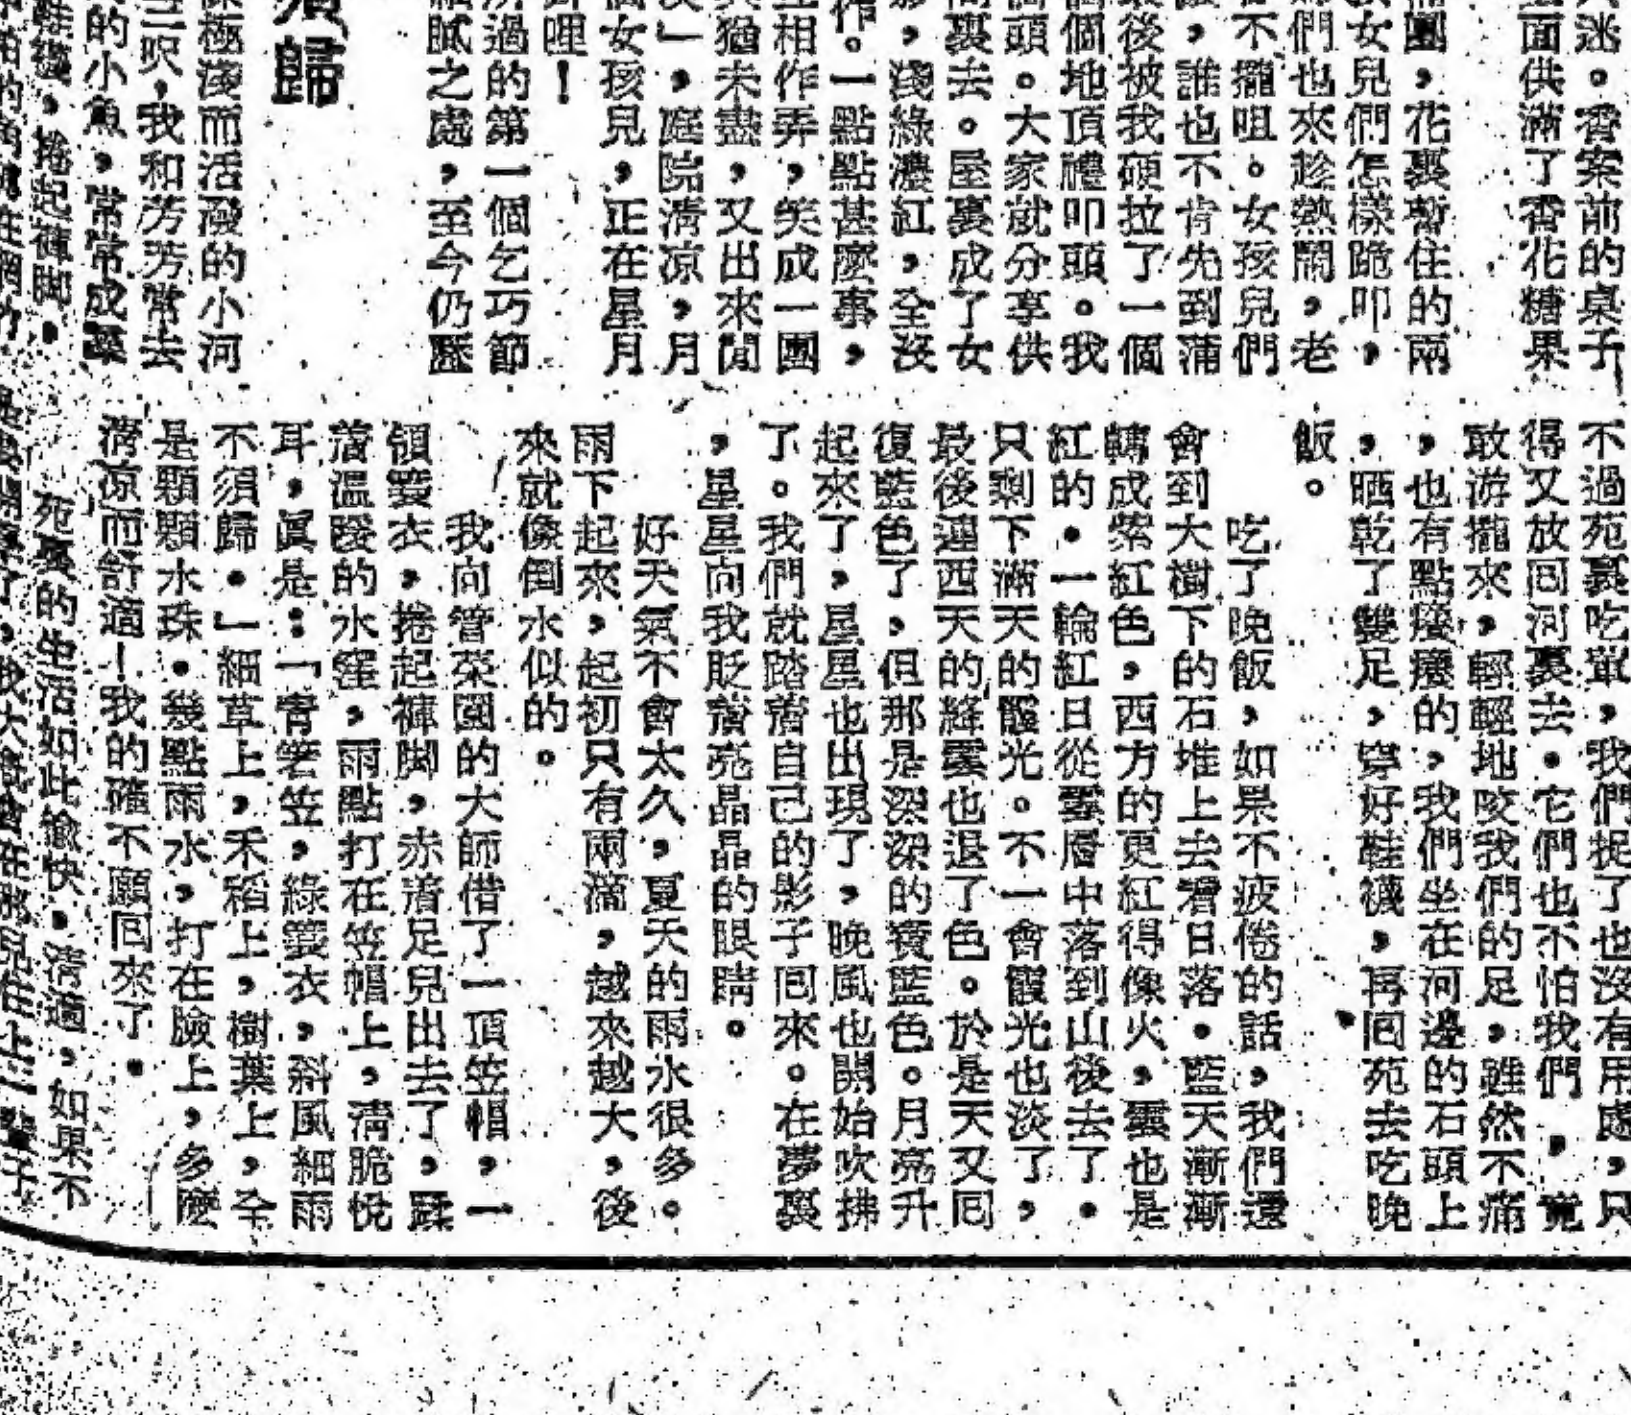 迷。香案前的桌子
面供滿了香花糖果
團，花裏暫住的兩
女兒們怎樣跪叩，
們也來趁熱鬧，老
不攏咀。女孩兒們
，誰也不肯先到蒲
後被我硬拉了一個
個地頂禮叩頭。我
頭。大家就分享供
裏去。屋裏成了女
，淺綠濃紅，全沒
作。一點點甚麼事，
相作弄，笑成一團
猶未盡，又出來閒
」，庭院清凉，月
女孩兒，正在星月
哩！
過的第一個乞巧節
膩之處，至今仍
歸
極淺而活潑的小河
呎，我和芳芳常去
的小魚，常常成羣
鞋襪，捲起褲脚，
不過苑裏吃葷，我們捉了也沒有用處，只
得又放囘河裏去．它們也不怕我們，竟
敢游攏來，輕輕地咬我們的足，雖然不痛
，也有點癢癢的，我們坐在河邊的石頭上
，晒乾了雙足，穿好鞋襪，再囘苑去吃晚
飯。
吃了晚飯，如果不疲倦的話，我們還
會到大樹下的石堆上去看日落．藍天漸漸
轉成紫紅色，西方的更紅得像火，雲也是
紅的．一輪紅日從雲層中落到山後去了．
只剩下滿天的霞光。不一會霞光也淡了，
最後連西天的絳雲也退了色。於是天又囘
復藍色了，但那是深深的寶藍色。月亮升
起來了，星星也出現了，晚風也開始吹拂
了。我們就踏着自己的影子囘來。在夢裏
，星星向我眨着亮晶晶的眼睛。
好天氣不會太久，夏天的雨水很多。
雨下起來，起初只有兩滴，越來越大，後
來就像倒水似的。
我向管菜園的大師借了一頂笠帽，一
領簑衣，捲起褲脚，赤着足兒出去了，踩
着溫暖的水窪，雨點打在笠帽上，清脆悅
耳，眞是：「青箬笠，綠簑衣，斜風細雨
不須歸．」細草上，禾稻上，樹葉上，全
是顆顆水珠．幾點雨水，打在臉上，多麼
清凉而舒適！我的確不願囘來了．
苑裏的生活如此愉快，清適，如果不